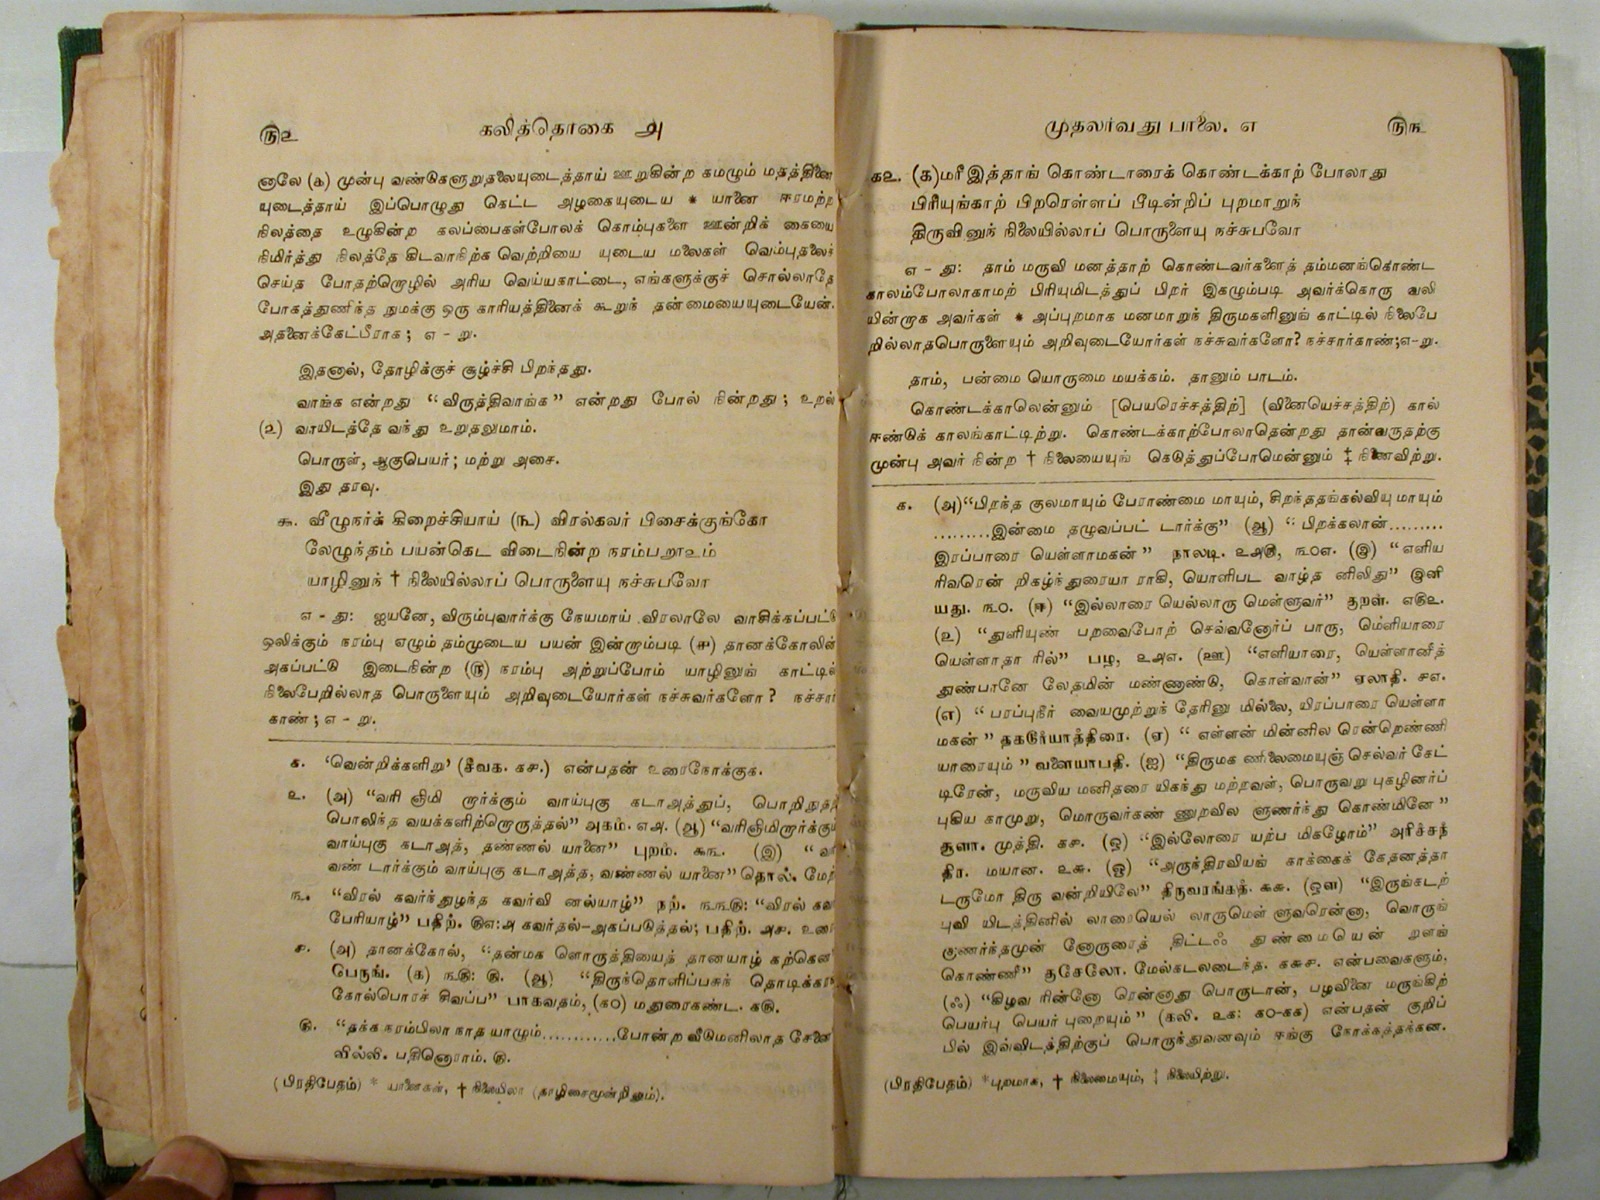 ௫௨ கலித்தொகை அ
னாலே (௨) முன்பு வண்டுகளுறுதலையுடைத்தாய் ஊறுகின்ற கமழும் மதத்தினை
யுடைத்தாய் இப்பொழுது கெட்ட அழகையுடைய * யானை ஈரமற்ற
நிலத்தை உழுகின்ற கலப்பைகள்போலக் கொம்புகளை ஊன்றிக் கையை
நிமிர்த்து நிலத்தே கிடவாநிற்க வெற்றியை யுடைய மலைகள் வெம்புதலைச்
செய்த போதற்றொழில் அரிய வெய்யகாட்டை, எங்களுக்குச் சொல்லாதே
போகத்துணிந்த நுமக்கு ஒரு காரியத்தினைக் கூறுந் தன்மையையுடையேன்.
அதனைக்கேட்பீராக; எ - று.
இதனால், தோழிக்குச் சூழ்ச்சி பிறந்தது.
வாங்க என்றது “விருத்திவாங்க” என்றது போல் நின்றது; உறல்
(௨) வாயிடத்தே வந்து உறுதலுமாம்.
பொருள், ஆகுபெயர்; மற்று அசை.
இது தரவு.
௯. வீழுநர்க் கிறைச்சியாய் (௩) விரல்கவர் பிசைக்குங்கோ
லேழுந்தம் பயன்கெட விடைநின்ற நரம்பறூஉம்
யாழினுந் † நிலையில்லாப் பொருளையு நச்சுபவோ
எ - து: ஐயனே, விரும்புவார்க்கு நேயமாய் விரலாலே வாசிக்கப்பட்டு
ஒலிக்கும் நரம்பு எழும் தம்முடைய பயன் இன்றாம்படி (௪) தானக்கோலின்
அகப்பட்டு இடைநின்ற (௫) நரம்பு அற்றுப்போம் யாழினுங் காட்டில்
நிலைபேறில்லாத பொருளையும் அறிவுடையோர்கள் நச்சுவர்களோ? நச்சார்
காண்; எ - று.
௧. ‘வென்றிக்களிறு’ (சீவக. ௧௪.) என்பதன் உரைநோக்குக.
௨. (அ) “வரி ஞிமி றார்க்கும் வாய்புகு கடாஅத்துப், பொறிநுதற்
பொலிந்த வயக்களிற்றொருத்தல்” அகம். ௭௮. (ஆ) “வரிஞிமிறார்க்கும்
வாய்புகு கடாஅத், தண்ணல் யானை” புறம். ௯௩. (இ) “வரி
வண் டார்க்கும் வாய்புகு கடாஅத்த, வண்ணல் யானை” தொல். மேற்
௩. “விரல் கவர்ந்துழந்த கவர்வி னல்யாழ்” நற். ௩௩௫: “விரல் கவ
பேரியாழ்” பதிற். ௫௭:௮ கவர்தல்–அகப்படுத்தல்; பதிற். ௮௪. உரை
௪. (அ) தானக்கோல், “தன்மக ளொருத்தியைத் தானயாழ் கற்கென
பேருங். (௧) ௩௫: ௫. (ஆ) “திருந்தொளிப்பசுந் தொடிக்கர
கோல்பொரச் சிவப்ப” பாகவதம், (௧௦) மதுரைகண்ட. ௧௫.
௫. “தக்க நரம்பிலா நாத யாழும்............போன்ற வீடுமனிலாத சேனை
வில்லி. பதினொராம். ௫.
(பிரதிபேதம்) * யானைகள், † நிலையிலா (தாழிசைமூன்றினும்).
முதலாவது பாலை. எ ௫௩
௧௨. (க)மரீஇத்தாங் கொண்டாரைக் கொண்டக்காற் போலாது
பிரியுங்காற் பிறரெள்ளப் பீடின்றிப் புறமாறுந்
திருவினுந் நிலையில்லாப் பொருளையு நச்சுபவோ
எ - து: தாம் மருவி மனத்தாற் கொண்டவர்களைத் தம்மனங்கொண்ட
காலம்போலாகாமற் பிரியுமிடத்துப் பிறர் இகழும்படி அவர்க்கொரு வலி
யின்றாக அவர்கள் * அப்புறமாக மனமாறுந் திருமகளினுங் காட்டில் நிலைபே
றில்லாதபொருளையும் அறிவுடையோர்கள் நச்சுவர்களோ? நச்சார்காண்;எ-று.
தாம், பன்மை யொருமை மயக்கம். தானும் பாடம்.
கொண்டக்காலென்னும் [பெயரெச்சத்திற்] (வினையெச்சத்திற்) கால்
ஈண்டுக் காலங்காட்டிற்று. கொண்டக்காற்போலாதென்றது தான்வருதற்கு
முன்பு அவர் நின்ற † நிலையையுங் கெடுத்துப்போமென்னும் ‡ நினைவிற்று.
௧. (அ)“பிறந்த குலமாயும் பேராண்மை மாயும், சிறந்ததங்கல்வியு மாயும்
.........இன்மை தழுவப்பட் டார்க்கு” (ஆ) “பிறக்கலான்.........
இரப்பாரை யெள்ளாமகன்” நாலடி. ௨௮௫, ௩௦௭. (இ) “எளிய
ரிவரென் றிகழ்ந்துரையா ராகி, யொளிபட வாழ்த னிலிது” இனி
யது. ௩௦. (ஈ) “இல்லாரை யெல்லாரு மெள்ளுவர்” குறள். ௭௫௨.
(உ) “துளியுண் பறவைபோற் செவ்வனோர்ப் பாரு, மெளியாரை
யெள்ளாதா ரில்” பழ, ௨௮௭. (ஊ) “எளியாரை, யெள்ளானீத்
துண்பானே லேதமின் மண்ணாண்டு, கொள்வான்” ஏலாதி. ௪௭.
(எ) “பரப்புநீர் வையமுற்றுந் தேரினு மில்லை, யிரப்பாரை யெள்ளா
மகன்” தகடூர்யாத்திரை. (ஏ) “எள்ளன் மின்னில ரென்றெண்ணி
யாரையும்” வளையாபதி. (ஐ) “திருமக ணிலைமையுஞ் செல்வர் கேட்
டிரேன், மருவிய மனிதரை யிகந்து மற்றவள், பொருவறு புகழினர்ப்
புகிய காமுறு, மொருவர்கண் ணுறவில ளுணர்ந்து கொண்மினே”
சூளா. முத்தி. ௧௪. (ஒ) “இல்லோரை யற்ப மிகழோம்” அரிச்சந்
திர. மயான. ௨௬. (ஓ) “அருந்திரவியங் காக்கைக் கேதனத்தா
டருமோ திரு வன்றியிலே” திருவரங்கத். ௬௬. (ஔ) “இருங்கடற்
புவி யிடத்தினில் லாரையெல் லாருமெள் ளுவரென்னா, வொருங்
குணர்ந்தமுன் னோருரைத் திட்டஃ துண்மையென் றுளங்
கொண்ணீ” குசேலோ. மேல்கடலடைந்த. ௧௬௪. என்பவைகளும்,
(ஃ) “கிழவ ரின்னோ ரென்னாது பொருடான், பழவினை மருங்கிற்
பெயர்பு பெயர் புறையும்” (கலி. ௨௧: ௧௦-௧௧) என்பதன் குறிப்
பில் இவ்விடத்திற்குப் பொருந்துவனவும் ஈங்கு நோக்கத்தக்கன.
(பிரதிபேதம்) *புறமாக, † நிலைமையும், ‡ நிலையிற்று.